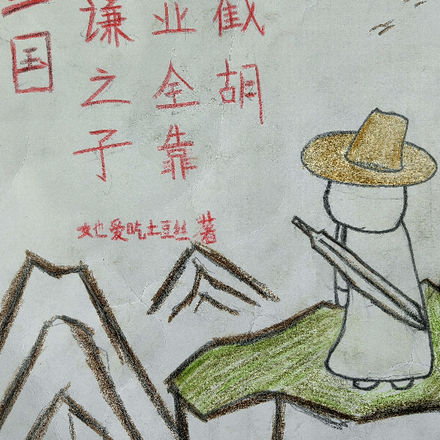 国
谦之子
业全靠
截胡
她爱吃土豆丝 著